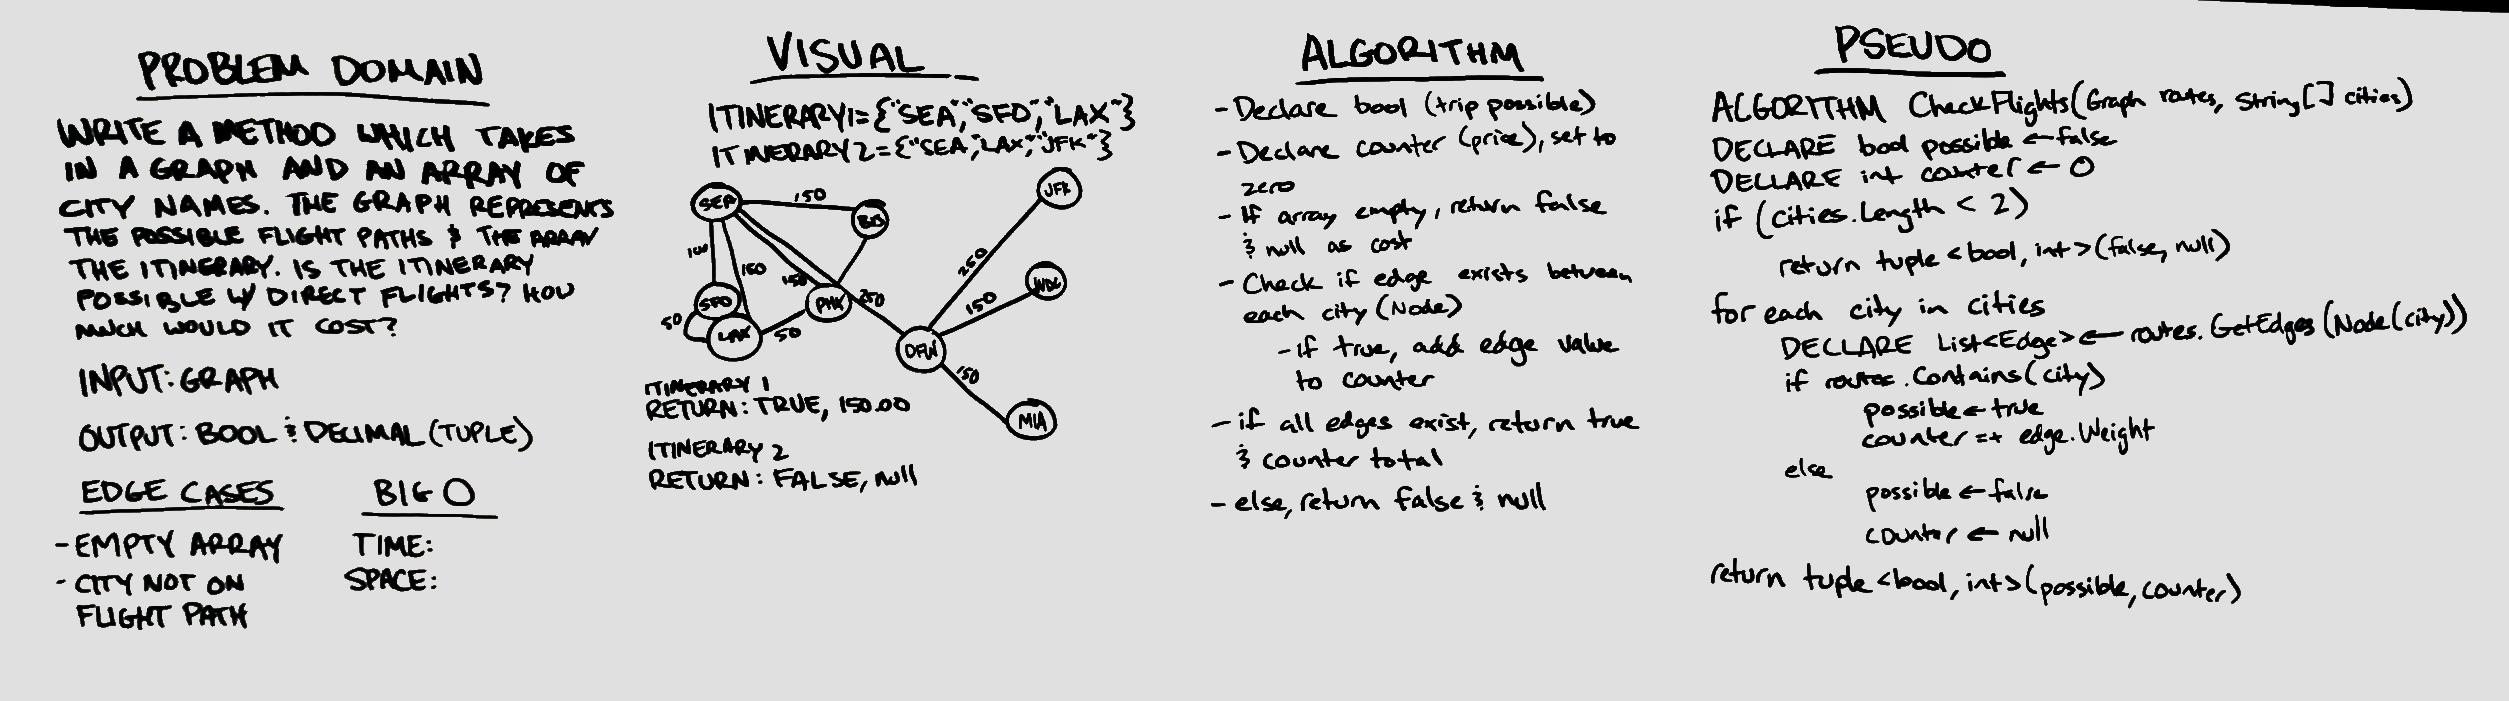 PROBLEM DOMAIN
WRITE A METHOD WHICH TAKES
IN A GRAPH AND AN ARRAY OF
CITY NAMES. THE GRAPH REPRESENTS
THE POSSIBLE FLIGHT PATHS & THE ARRAY
THE ITINERARY. IS THE ITINERARY
POSSIBLE W/ DIRECT FLIGHTS? HOW
MUCH WOULD IT COST?
INPUT: GRAPH
OUTPUT: BOOL & DECIMAL (TUPLE)
EDGE CASES
- EMPTY ARRAY
- CITY NOT ON
FLIGHT PATH
BIG O
TIME:
SPACE:
VISUAL
ITINERARY1={"SEA","SFO","LAX"}
ITINERARY2={"SEA","LAX","JFK"}
SEA
150
JFK
100
150
150
250
250
WDC
SFO
PHX
150
50
LAX
50
DFW
150
MIA
ITINERARY 1
RETURN: TRUE, 150.00
ITINERARY 2
RETURN: FALSE, null
ALGORITHM
- Declare bool (trip possible)
- Declare counter (price), set to
zero
- If array empty, return false
& null as cost
- Check if edge exists between
each city (Node)
- if true, add edge value
to counter
- if all edges exist, return true
& counter total
- else, return false & null
PSEUDO
ALGORITHM CheckFlights(Graph routes, String[] cities)
DECLARE bool possible ← false
DECLARE int counter ← 0
if (cities.Length < 2)
return tuple <bool, int>(false, null)
for each city in cities
DECLARE List<Edge> ← routes.GetEdges(Node(city))
if routes.Contains(city)
possible ← true
counter =+ edge.Weight
else
possible ← false
counter ← null
return tuple <bool, int>(possible, counter)